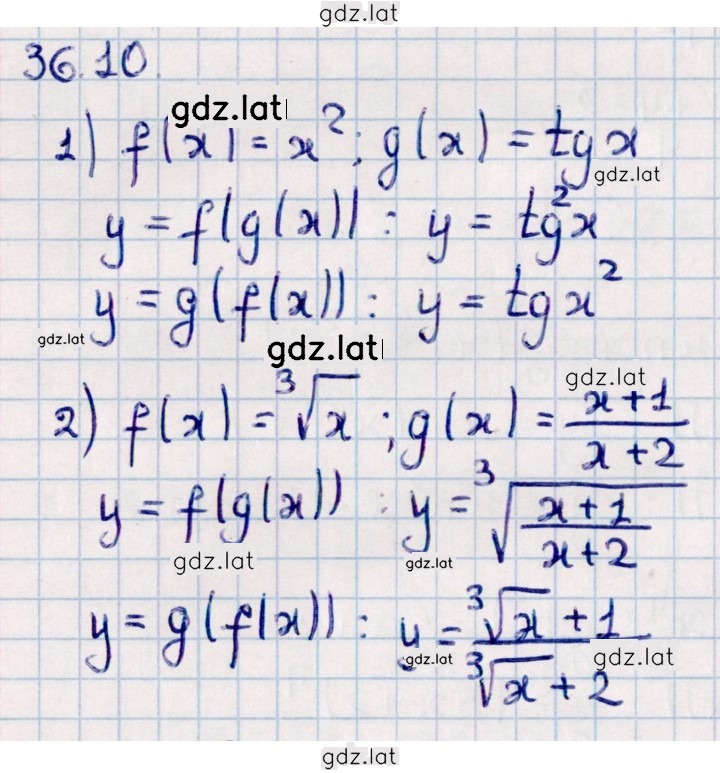 gdz.lat
36.10.
gdz.lat
1) f(x) = x²; g(x) = tg x
gdz.lat
y = f(g(x)) : y = tg²x
y = g(f(x)) : y = tg x²
gdz.lat
gdz.lat
gdz.lat
2) f(x) = ³√x ; g(x) = (x+1)/(x+2)
y = f(g(x)) : y = ³√((x+1)/(x+2))
gdz.lat
gdz.lat
y = g(f(x)) : y = (³√x + 1)/(³√x + 2)
gdz.lat
gdz.lat
gdz.lat